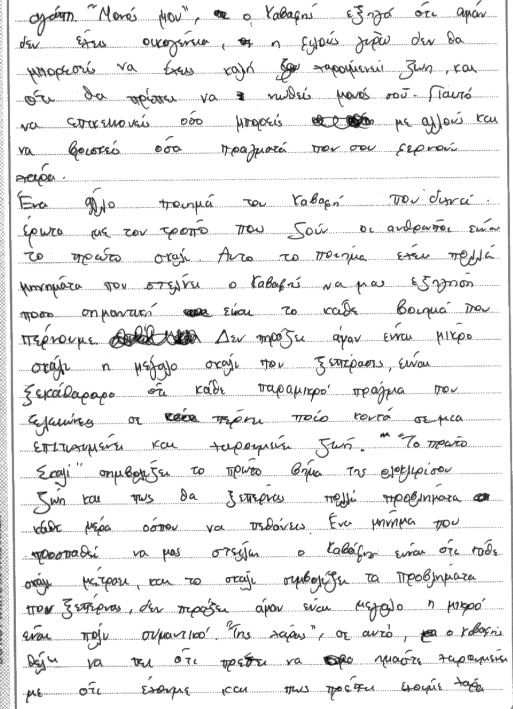 αγάπη "Μονός μου", ο Καβαφής εξηγά ότι αμάν
δεν έχεις οικογένεια, η φιλούς γύρω δεν θα
μπορεσεις να έχεις καλή χαρουμενεί ζωή, και
ότι θα πρέπει να νιωθείς μονός σού. Γιαυτό
να επικοινονείς όσο μπορείς με αλλούς και
να βρισκείς όσα πραγματά που σου ξερνουν
χαρα.
Ένα άλλο ποιημά του Καβαφή που δίνει
έρωτα με τον τροπό που ζούν οι ανθρωποι είναι
το πρώτο σκαλί. Αυτο το ποιήμα έχει πολλά
μηνηματα που στέλνει ο Καβαφής να μας εξηγήση
ποσο σημαντική είναι το κάθε βοιημά που
πέρνουμε Δεν πηράζει άμαν είναι μικρο
σκάλι η μεγαλο σκαλι που ξεπέρασες, είναι
ξεκάθαραρο ότι κάθε παραμικρο πράγμα που
σε πέρνη ποίο κοντά σε μια
επιτυχιμένει και χαρουμενεί ζωή. "Το πρωτο
Σκαλί" σημβολιζει το πρώτο βήμα της
ζωή και πως θα ξεπερνας πολλά προβλήματα
κάθε μέρα όσπου να πεθάνεις. Ενα μηνήμα που
προσπαθεί να μας στείλει ο Καβάφης ειναι ότι κάθε
σκαλι μετραει, και το σκαλι συμβολίζει τα προβληματα
που ξεπέρνας, δεν πειράζει άμαν ειναι μεγαλο η μικρό
είναι πολυ συμαντικο. "Της χαράς", σε αυτό, ο Καβαφής
θέλει να πει ότι πρέπει να ημαστε χαρουμενει
με οτι έχουμε και πως πρέπει έχουμε χαρά